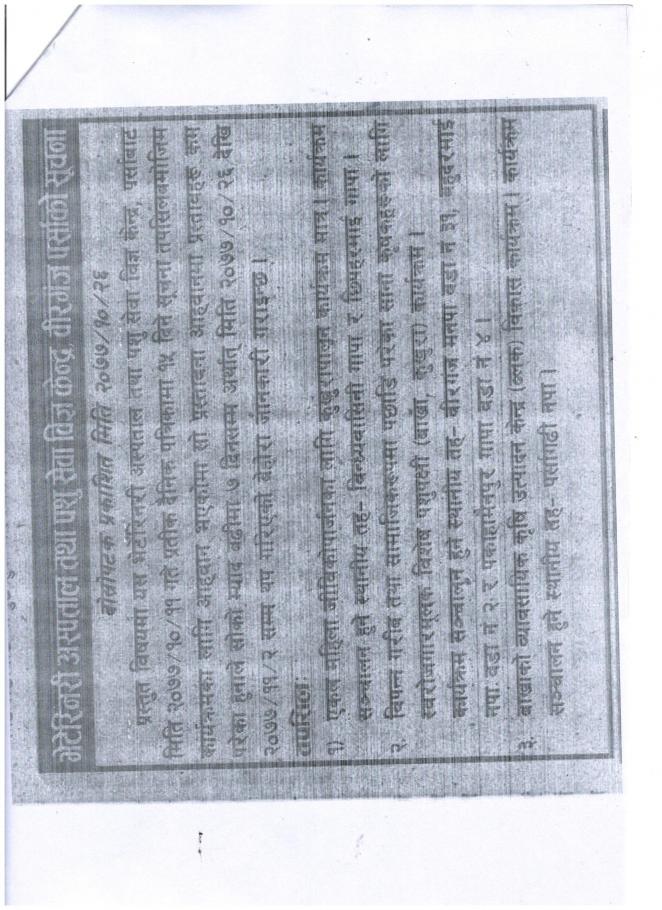 भेटेरिनरी अस्पताल तथा पशु सेवा विज्ञ केन्द्र वीरगंज पर्साको सूचना
दोस्रोपटक प्रकाशित मिति २०७७/१०/२६
प्रस्तुत विषयमा यस भेटेरिनरी अस्पताल तथा पशु सेवा विज्ञ केन्द्र, पर्साबाट
मिति २०७७/१०/११ गते प्रतीक दैनिक पत्रिकामा १५ दिने सूचना तपसिलबमोजिम
कार्यक्रमका लागि आह्वान भएकोमा सो प्रस्तावना आह्वानमा प्रस्तावहरू कम
परेका हुनाले सोको म्याद बढीमा ७ दिनसम्म अर्थात् मिति २०७७/१०/२६ देखि
२०७७/११/२ सम्म थप गरिएको बेहोरा जानकारी गराइन्छ।
तपसिल:
१) एकल महिला जीविकोपार्जनका लागि कुखुरापालन कार्यक्रम मात्र। कार्यक्रम
सञ्चालन हुने स्थानीय तह- बिन्ध्यबासिनी गापा र छिपहरमाई गापा।
२. विपन्न गरीब तथा सामाजिकरूपमा पछाडि परेका साना कृषकहरूको लागि
स्वरोजगारमूलक विशेष पशुपक्षी (बाख्रा, कुखुरा) कार्यक्रम।
कार्यक्रम सञ्चालन हुने स्थानीय तह- वीरगंज मनपा वडा नं ३१, बहुदरमाई
नपा. वडा नं २ र पकाहामैनपुर गापा वडा नं ४।
३. बाख्राको व्यावसायिक कृषि उत्पादन केन्द्र (ब्लक) विकास कार्यक्रम। कार्यक्रम
सञ्चालन हुने स्थानीय तह- पर्सागढी नपा।